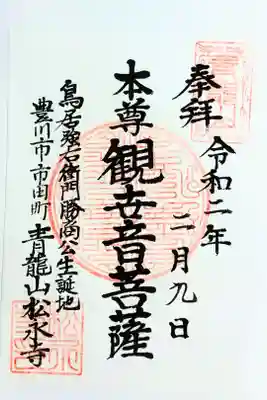 奉拝 令和二年
二月九日
本尊 観世音菩薩
鳥居強右衛門勝商公生誕地
豊川市市田町 青龍山松永寺